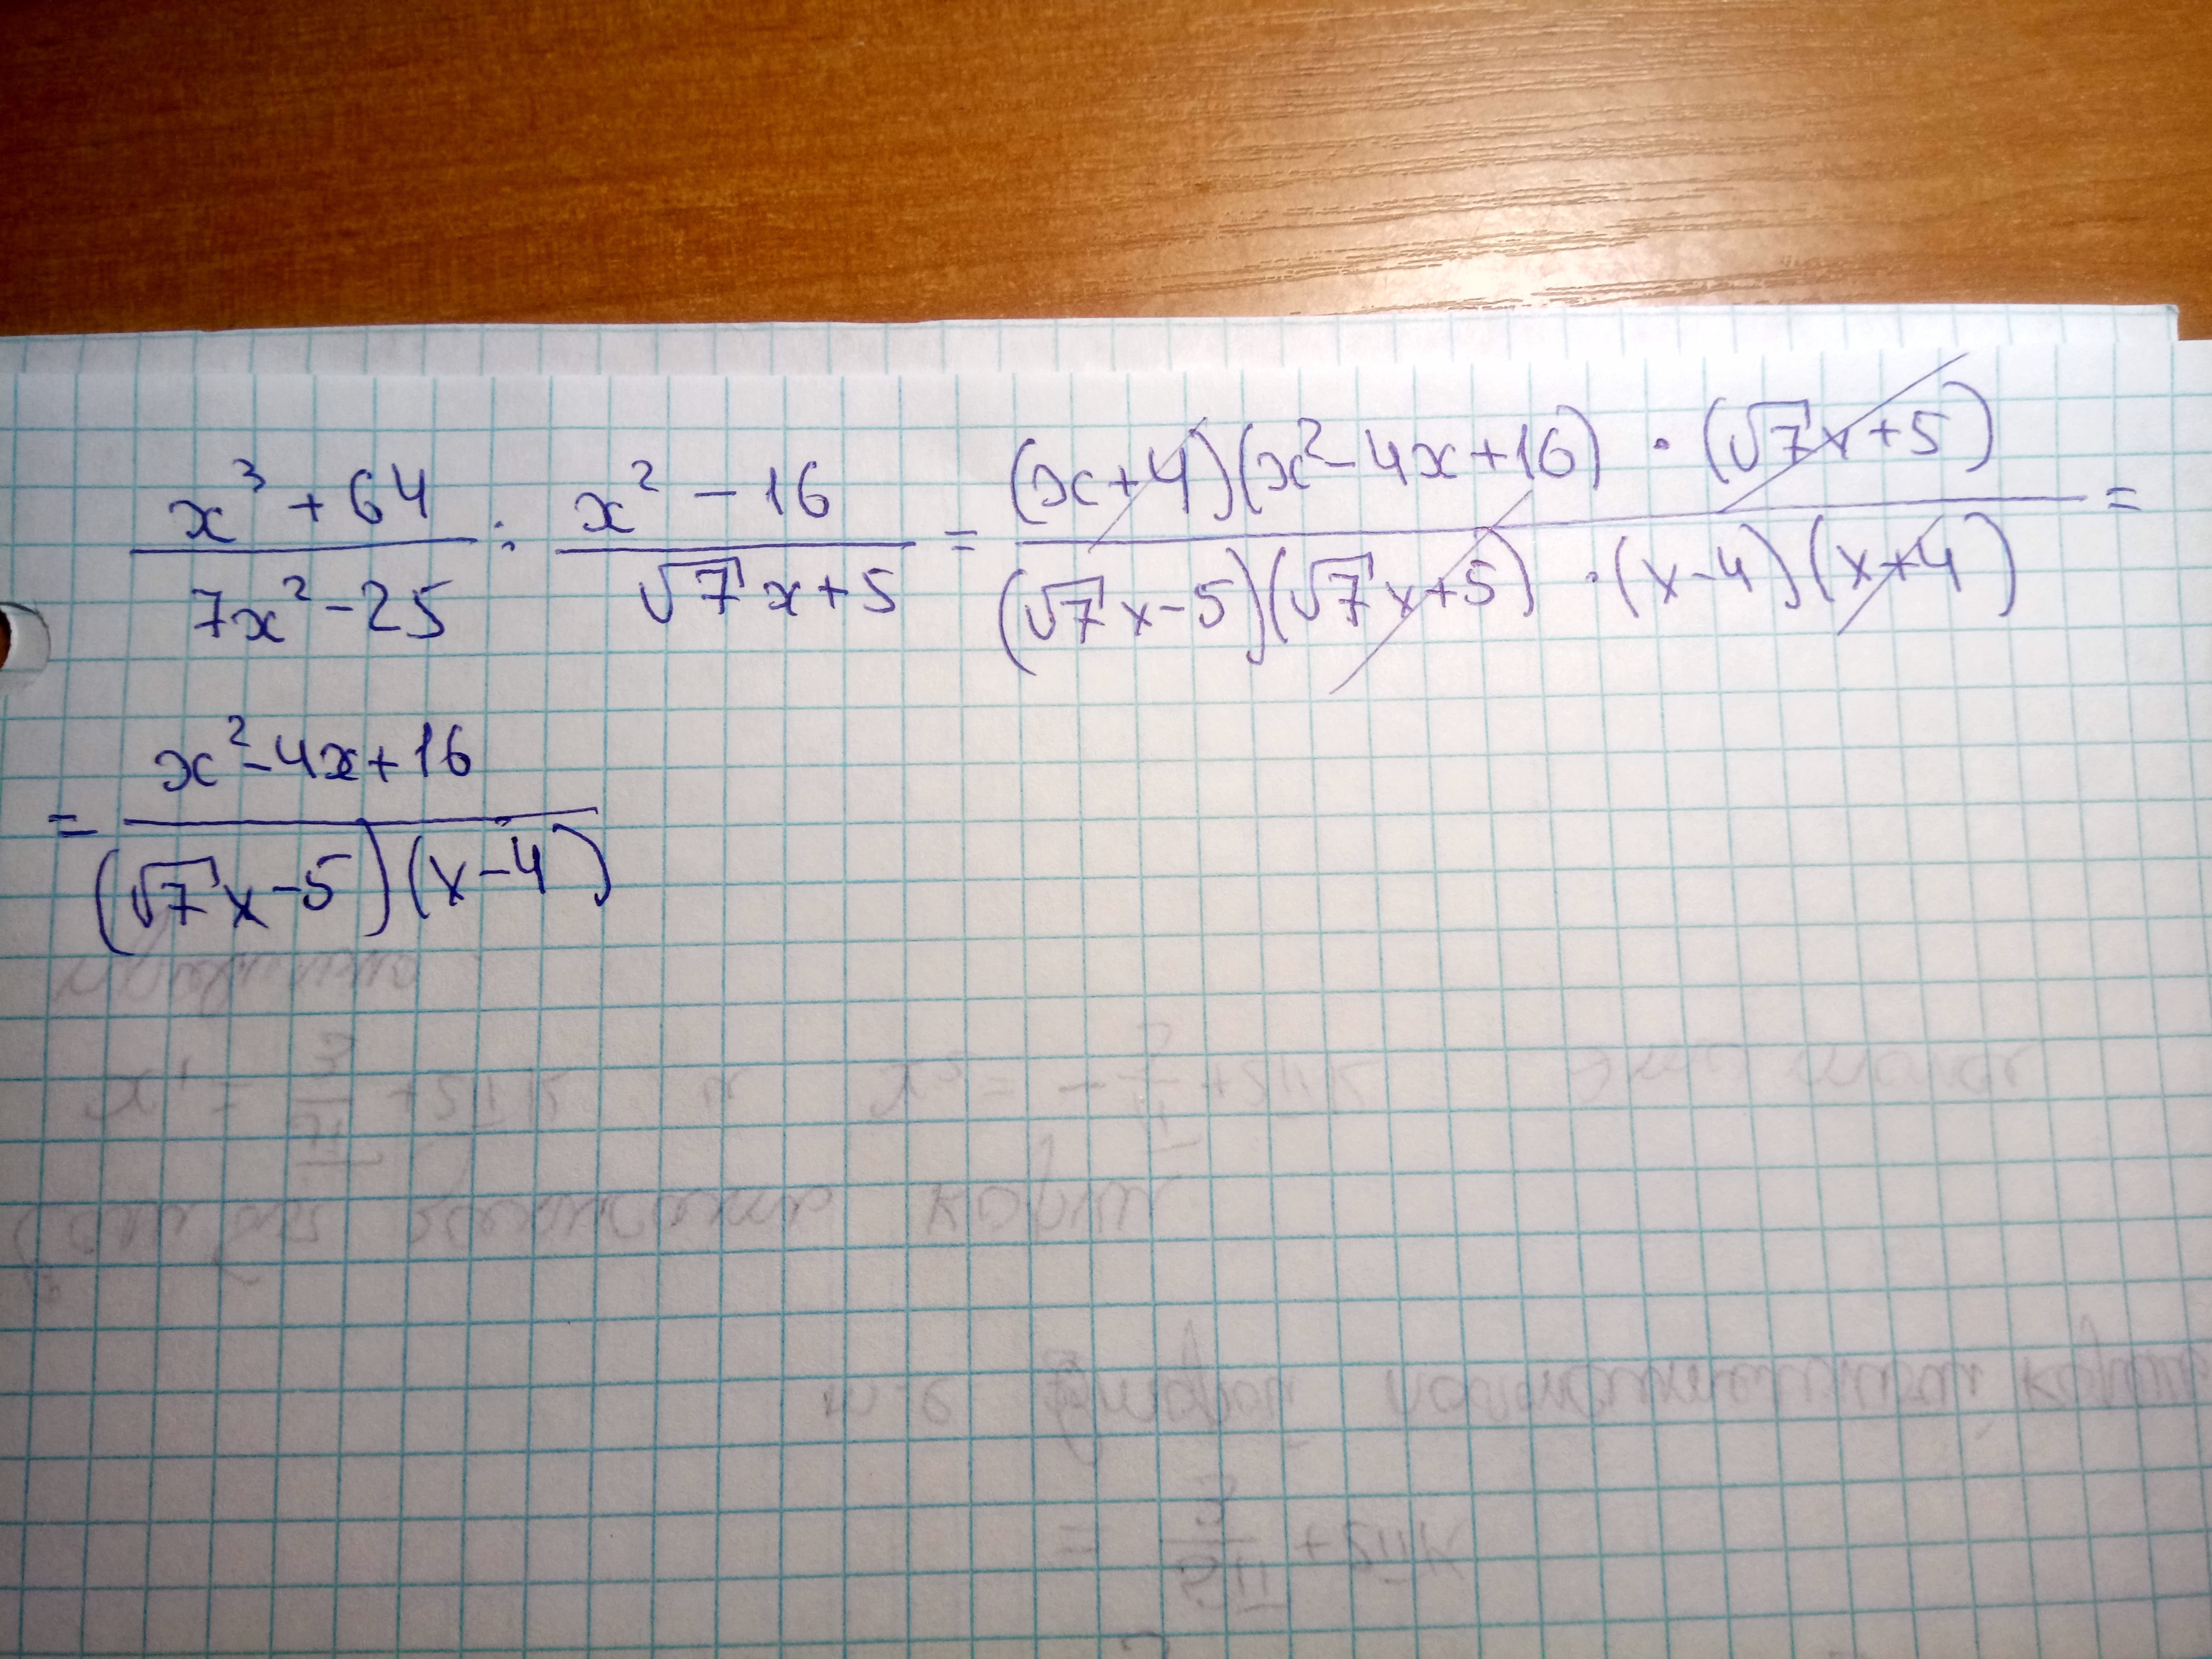 (x³ + 64)/(7x² - 25) : (x² - 16)/(√7 x + 5) = ((x + 4)(x² - 4x + 16) · (√7 x + 5))/((√7 x - 5)(√7 x + 5) · (x - 4)(x + 4)) =
= (x² - 4x + 16)/((√7 x - 5)(x - 4))